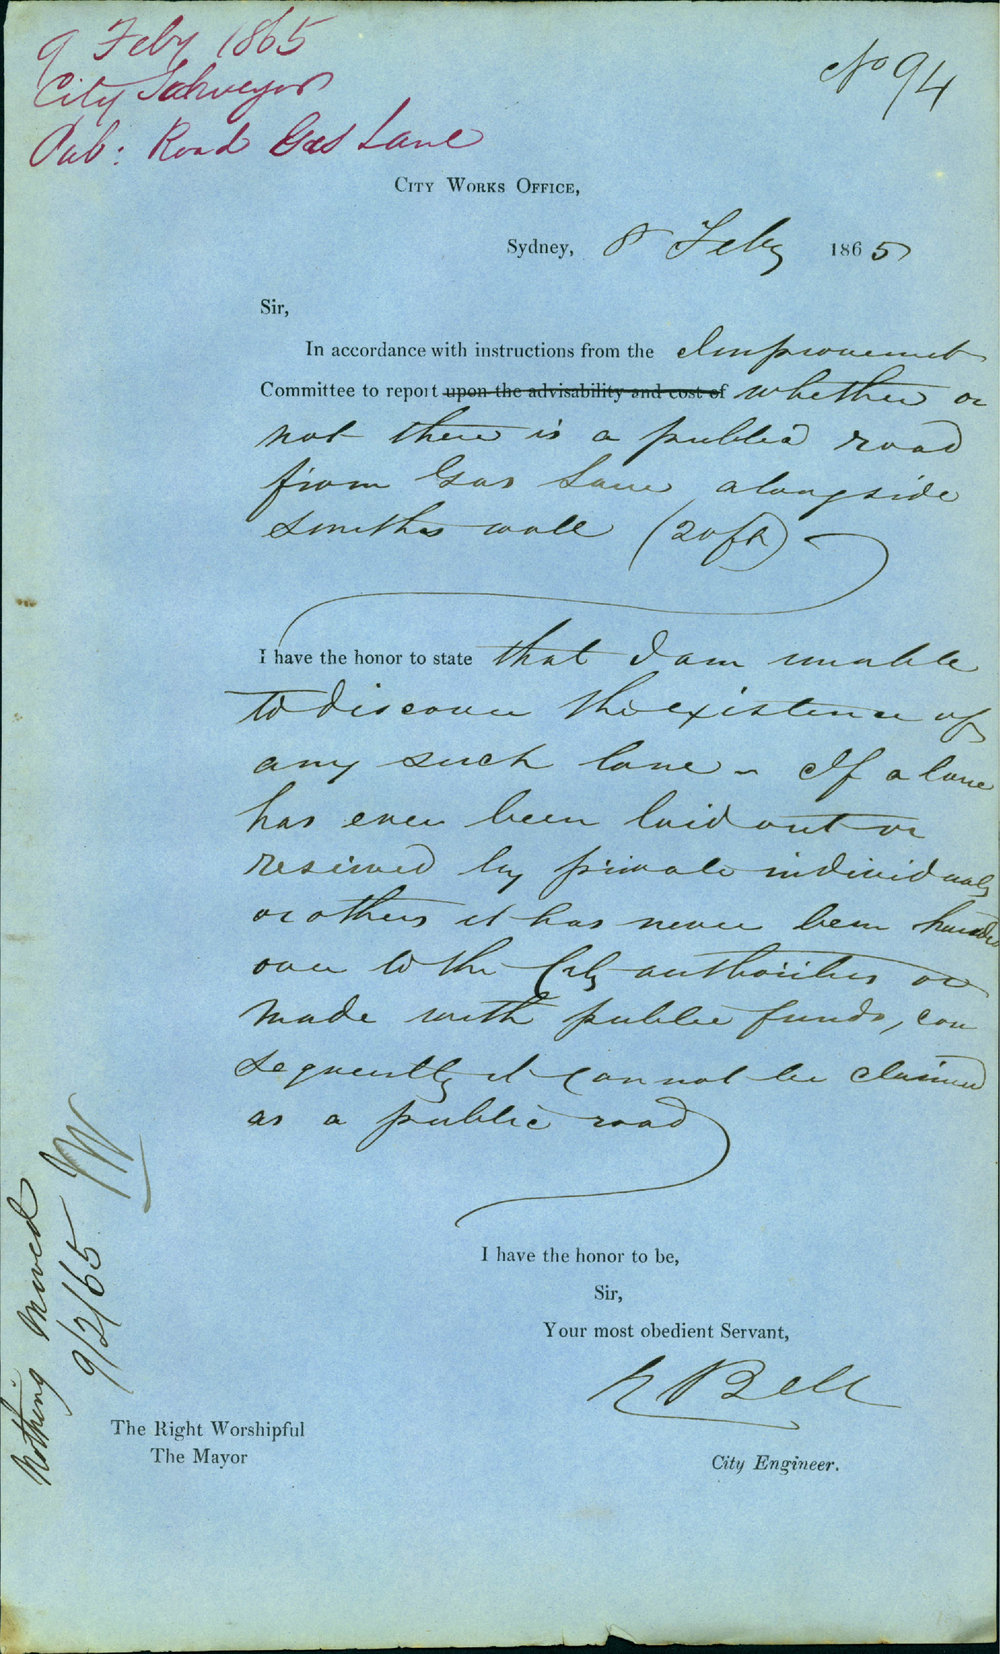 9 Feby 1865
City Surveyor
Pub: Road Gas Lane
No 94
City Works Office,
Sydney, 8 Feby 1865
Sir,
In accordance with instructions from the Improvement
Committee to report upon the advisability and cost of whether or
not there is a public road
from Gas Lane alongside
Smiths wall (20ft)
I have the honor to state that I am unable
to discover the existence of
any such lane - If a lane
has ever been laid out or
reserved by private individuals
or others it has never been handed
over to the City authorities or
made with public funds, con
sequently it cannot be claimed
as a public road
I have the honor to be,
Sir,
Your most obedient Servant,
Bell
City Engineer.
The Right Worshipful
The Mayor
Nothing Moved
9/2/65